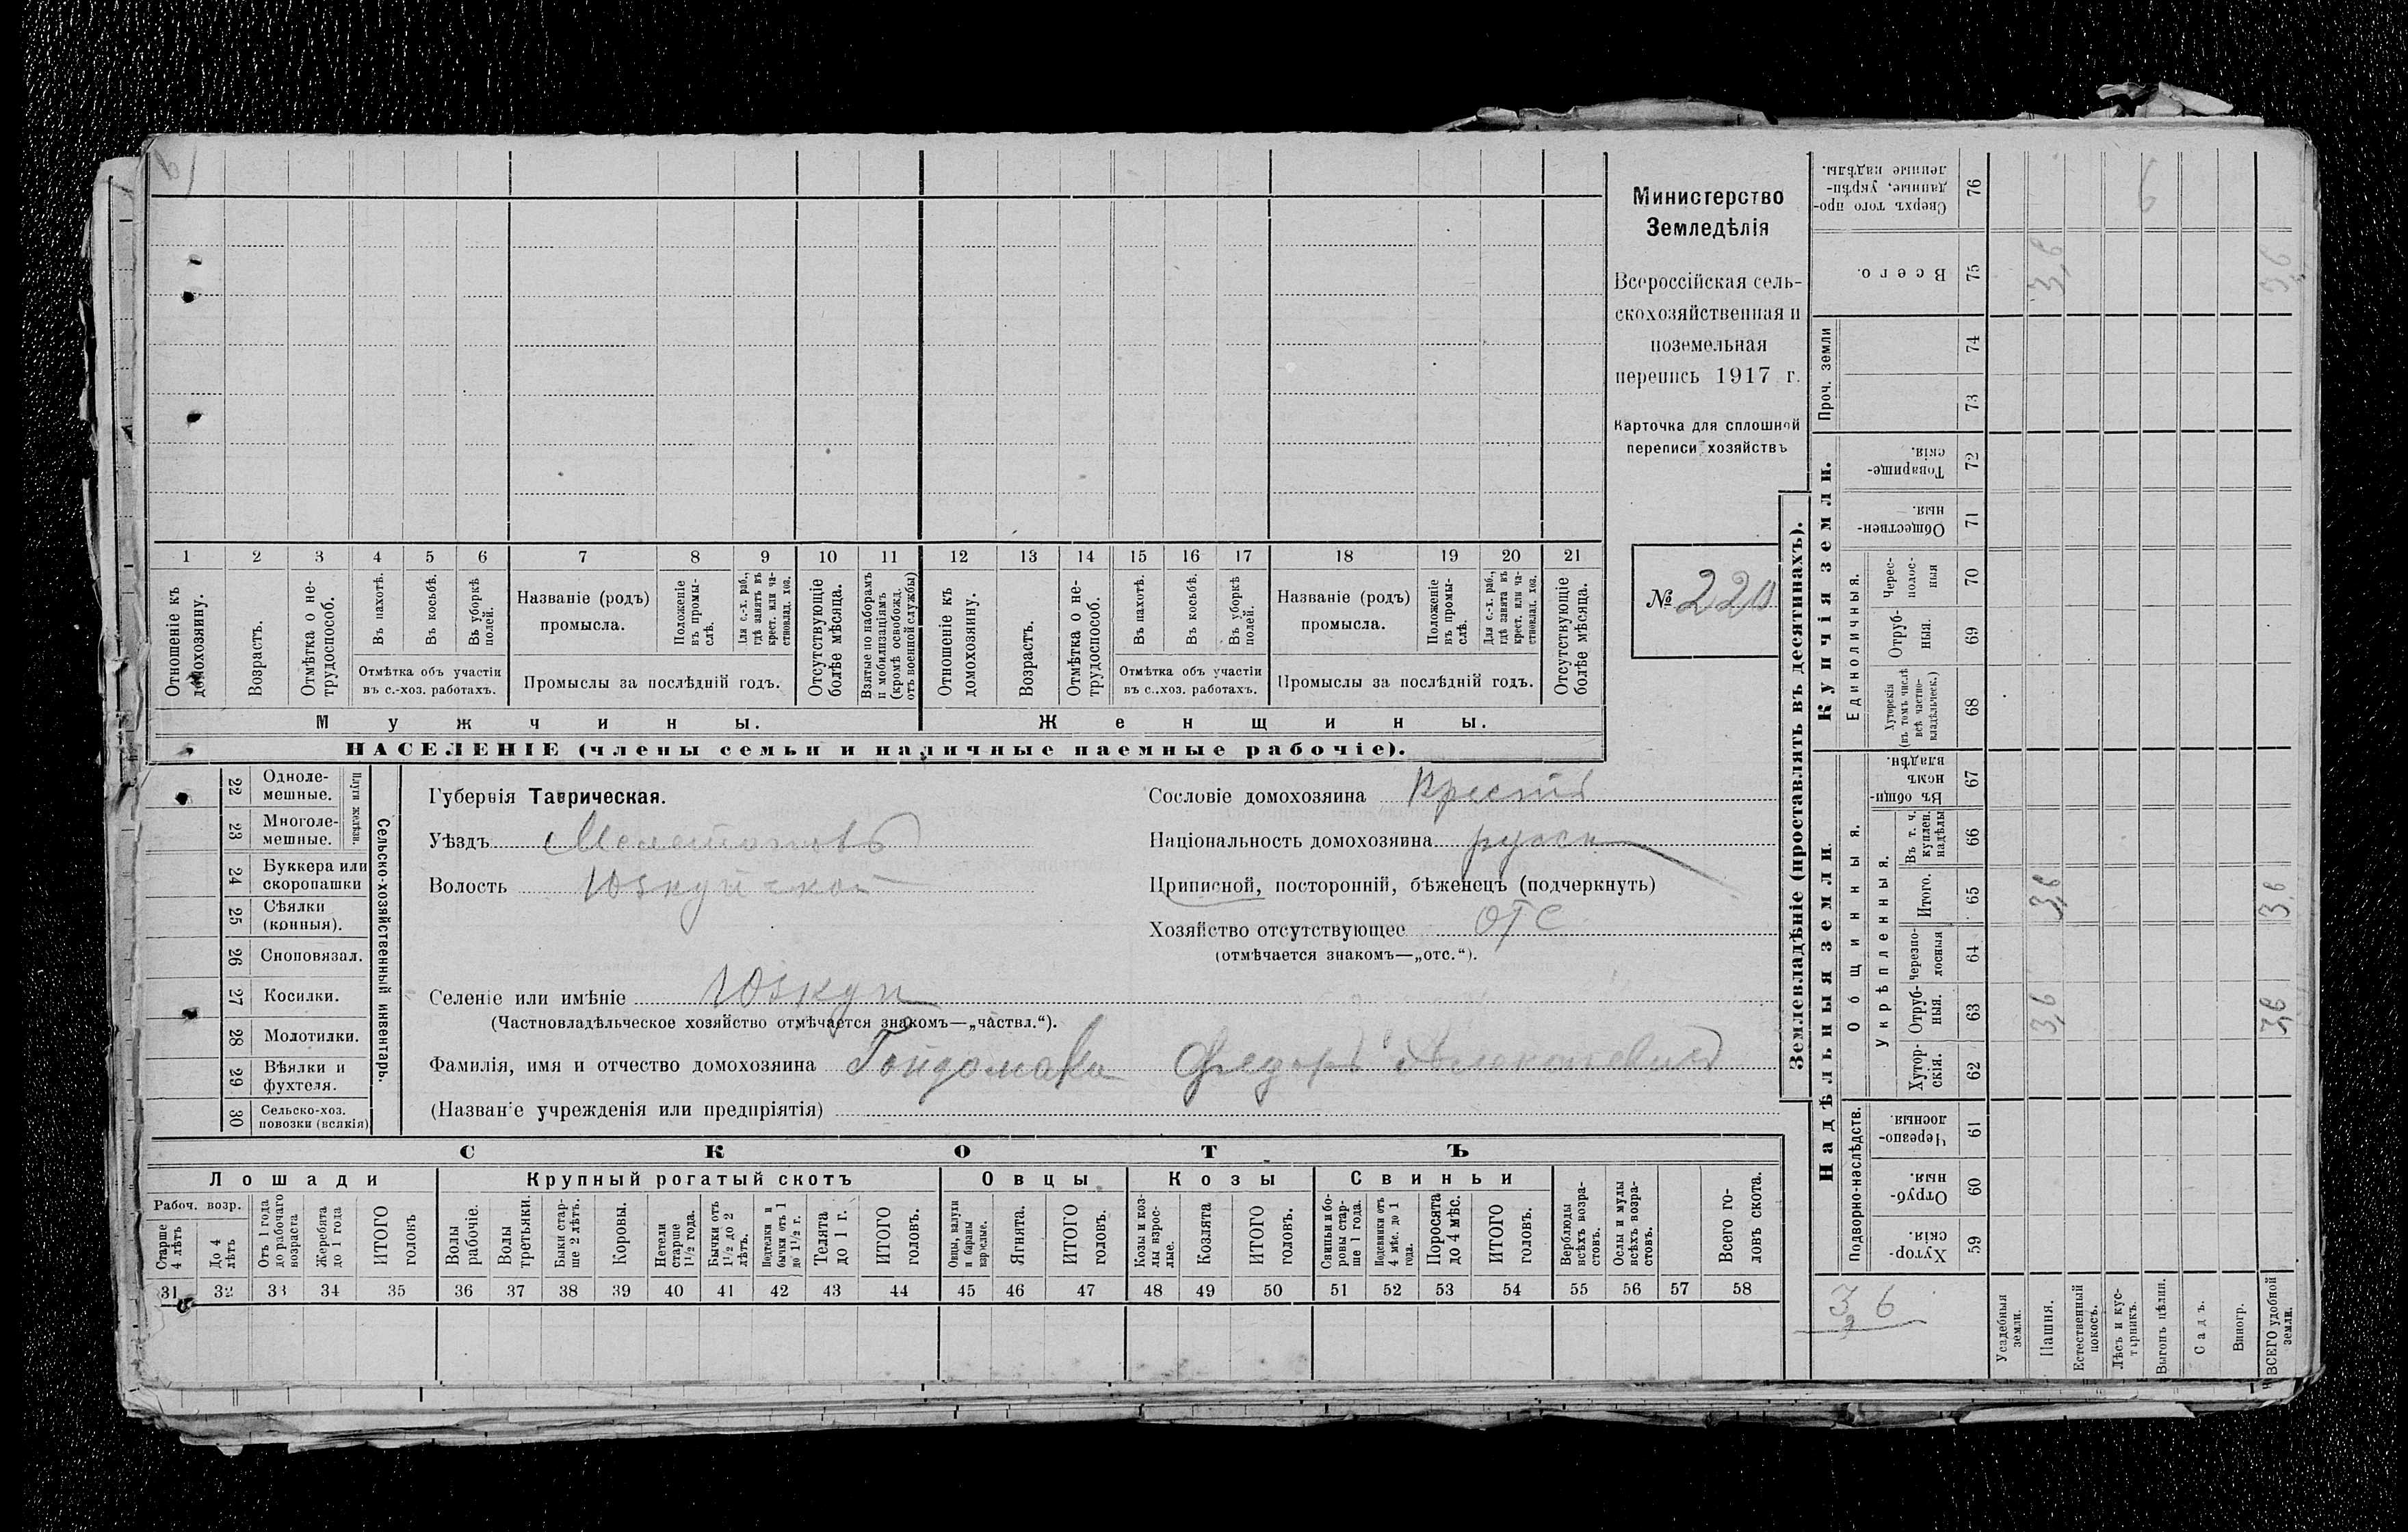 Министерство
Земледѣлія
Всероссійская сель-
скохозяйственная и
поземельная
перепись 1917 г.
Карточка для сплошной
переписи хозяйствъ
№ 220
1 2 3 4 5 6 7 8 9 10 11 12 13 14 15 16 17 18 19 20 21
Отношеніе къ домохозяину.
Возрастъ.
Отмѣтка о не-трудоспособ.
Въ пахотѣ.
Въ косьбѣ.
Въ уборкѣ полей.
Отмѣтка объ участіи въ с.-хоз. работахъ.
Названіе (родъ) промысла.
Положеніе въ промы-слѣ.
Для с.-х. раб., гдѣ занятъ въ крест. или ча-стновлад. хоз.
Промыслы за послѣдній годъ.
Отсутствующіе болѣе мѣсяца.
Взятые по наборамъ и мобилизаціямъ (кромѣ освобожд. отъ военной службы)
Отношеніе къ домохозяину.
Возрастъ.
Отмѣтка о не-трудоспособ.
Въ пахотѣ.
Въ косьбѣ.
Въ уборкѣ полей.
Отмѣтка объ участіи въ с.-хоз. работахъ.
Названіе (родъ) промысла.
Положеніе въ промы-слѣ.
Для с.-х. раб., гдѣ занята въ крест. или ча-стновлад. хоз.
Промыслы за послѣдній годъ.
Отсутствующіе болѣе мѣсяца.
Мужчины.
Женщины.
НАСЕЛЕНІЕ (члены семьи и наличные наемные рабочіе).
22 Одноле-мешные.
23 Многоле-мешные.
Плуги желѣзн.
24 Буккера или скоропашки
25 Сѣялки (конныя).
26 Сноповязал.
27 Косилки.
28 Молотилки.
29 Вѣялки и фухтеля.
30 Сельско-хоз. повозки (всякія)
Сельско-хозяйственный инвентарь.
Губернія Таврическая.
Уѣздъ
Волость Юзкуйской
Сословіе домохозяина Крестья
Національность домохозяина русск
Приписной, посторонній, бѣженецъ (подчеркнуть)
Хозяйство отсутствующее ОТС
(отмѣчается знакомъ—„отс.“).
Селеніе или имѣніе Юзкуи
(Частновладѣльческое хозяйство отмѣчается знакомъ—„частвл.“).
Фамилія, имя и отчество домохозяина Гойдомака Федоръ
(Названіе учрежденія или предпріятія)
СКОТЪ
Лошади
Крупный рогатый скотъ
Овцы
Козы
Свиньи
Рабоч. возр.
Старше 4 лѣтъ
До 4 лѣтъ
Отъ 1 года до рабочаго возраста
Жеребята до 1 года
ИТОГО головъ
Волы рабочіе.
Волы третьяки.
Быки стар-ше 2 лѣтъ.
Коровы.
Нетели старше 1½ года.
Бычки отъ 1½ до 2 лѣтъ.
Подтелки и бычки отъ 1 до 1½ г.
Телята до 1 г.
ИТОГО головъ.
Овцы, валухи и бараны взрослые.
Ягнята.
ИТОГО головъ.
Козы и коз-лы взрос-лые.
Козлята
ИТОГО головъ.
Свиньи и бо-ровы стар-ше 1 года.
Подсвинки отъ 4 мѣс. до 1 года.
Поросята до 4 мѣс.
ИТОГО головъ.
Верблюды всѣхъ возра-стовъ.
Ослы и мулы всѣхъ возра-стовъ.
Всего го-ловъ скота.
31 32 33 34 35 36 37 38 39 40 41 42 43 44 45 46 47 48 49 50 51 52 53 54 55 56 57 58
Землевладѣніе (проставлять въ десятинахъ).
Надѣльныя земли.
Купчія земли.
Проч. земли
Подворно-наслѣдств.
Общинныя.
Укрѣпленныя.
Единоличныя.
Сверхъ того про-данные, укрѣп-ленные надѣлы. 76 6
Всего. 75 3,6 3,6
74
73
Товарище-скія. 72
Обществен-ныя. 71
Черес-полос-ныя 70
Отруб-ныя. 69
Хуторскія (въ томъ числѣ всѣ частно-владѣльческ.) 68
Въ общи-номъ владѣн. 67
Въ т. ч. куплен. надѣлы 66
Итого. 65 3,6 3,6
Черезпо-лосныя 64
Отруб-ныя. 63 3,6 3,6
Хутор-скія. 62
Черезпо-лосныя 61
Отруб-ныя. 60
Хутор-скія. 59
3,6
Усадебныя земли.
Пашня.
Естественный покосъ.
Лѣсъ и кус-тарникъ.
Выгонъ цѣлин.
Садъ.
Виногр.
ВСЕГО удобной земли.